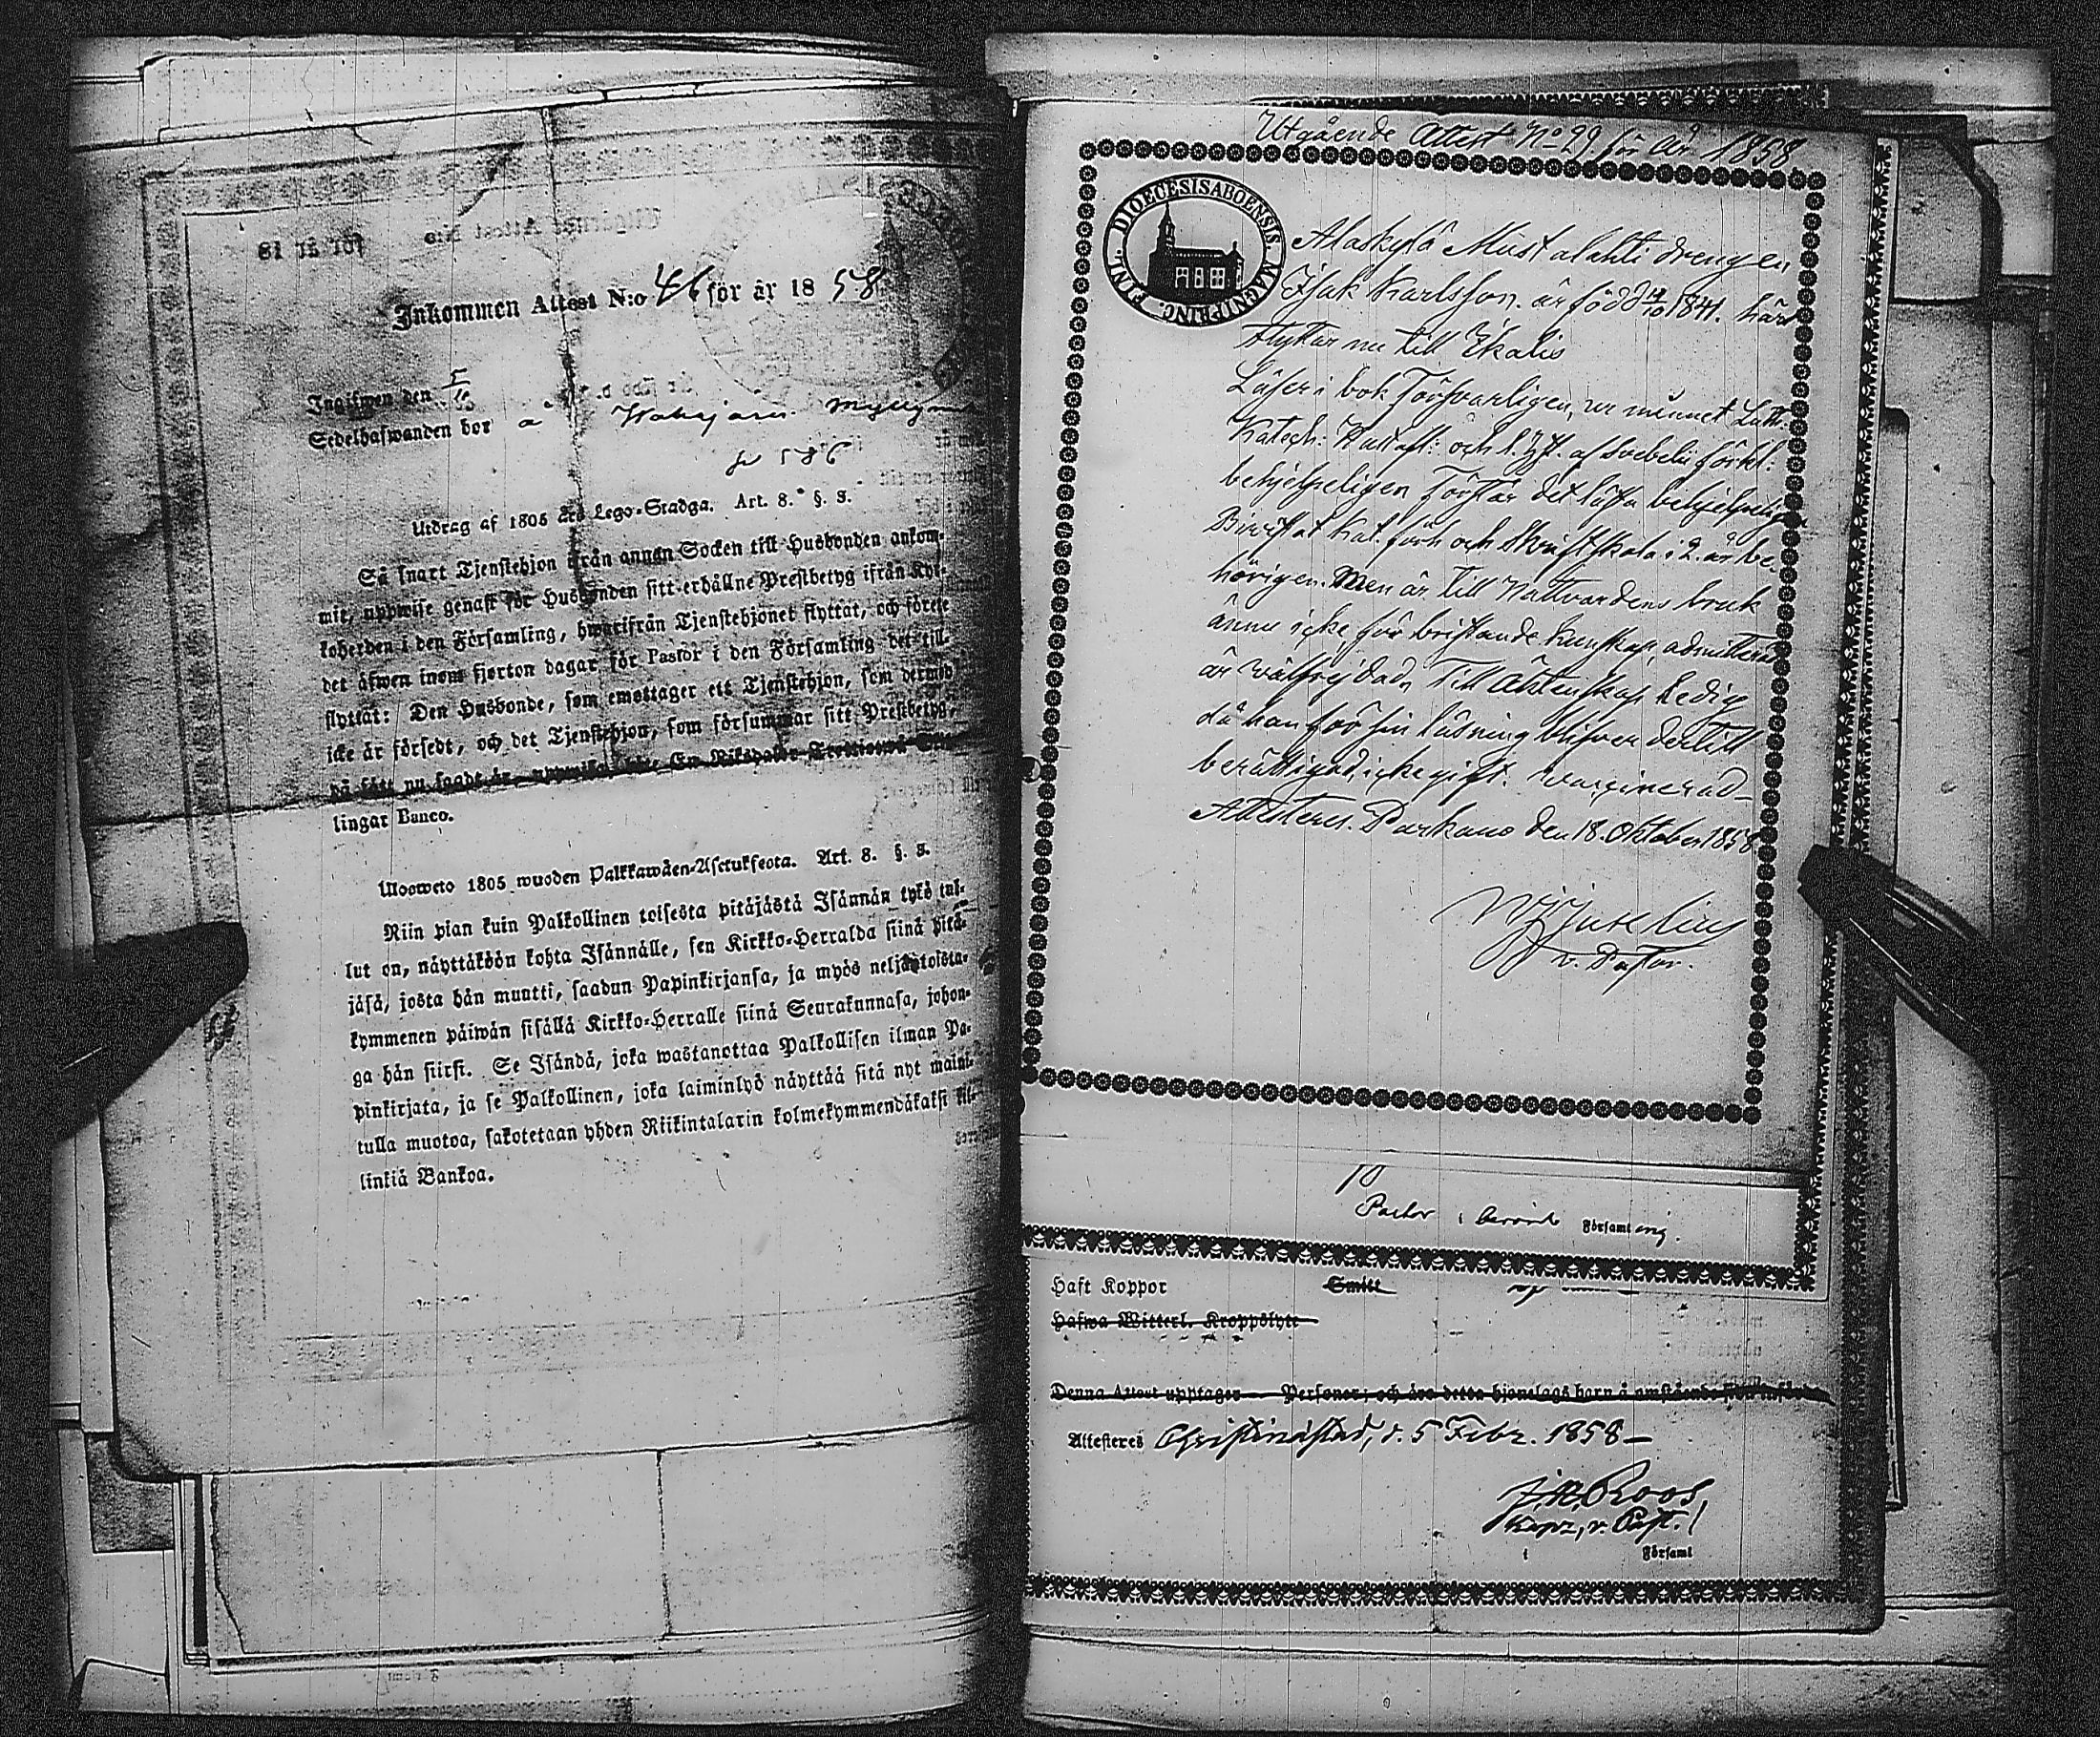 Inkommen Attest N:o 46 för år 1858
Ingifwen den 5/11
Sedelhafwanden bor å
fo 586
Utdrag af 1805 års Lego-Stadga. Art. 8. §. 8.
Så snart Tjenstehjon ifrån annan Socken till Husbonden ankom-
mit, uppwise genast för Husbonden sitt erhållne Prestbetyg ifrån Kyr-
koherden i den Församling, hwarifrån Tjenstehjonet flyttat, och förete
det äfwen inom fjorton dagar för Pastor i den Församling det till-
flyttat: Den Husbonde, som emottager ett Tjenstehjon, som dermed
icke är försedt, och det Tjenstehjon, som försummar sitt Prestbetyg,
på sätt nu sagdt är, uppwisa, böte En Riksdaler Trettiotwå Skil-
lingar Banco.
Ulosweto 1805 wuoden Palkkawäen-Asetuksesta. Art. 8. §. 8.
Niin pian kuin Palkollinen toisesta pitäjästä Isännän tykö tul-
lut on, näyttäköön kohta Isännälle, sen Kirkko-Herralda siinä pitä-
jäsä, josta hän muutti, saadun Papinkirjansa, ja myös neljäntoista-
kymmenen päiwän sisällä Kirkko-Herralle siinä Seurakunnasa, johon-
ga hän siirsi. Se Isändä, joka wastanottaa Palkollisen ilman Pa-
pinkirjata, ja se Palkollinen, joka laiminlyö näyttää sitä nyt maini-
tulla muotoa, sakotetaan yhden Riikintalarin kolmekymmendäkaksi kil-
linkiä Bankoa.
Utgående Attest No 29 för År 1858
DIOECESIS ABOENSIS. MAGNI PRINC. FINL.
Alaskylä Mustalahti drengen
Isak Karlsson. är född 14/10 1841. här
flyttar nu till Ikalis
Läser i bok försvarligen, ur minnet Luth:
Katech: Hustafl: och l. Spt. af Svebelii förkl:
behjelpeligen Förstår det lästa behjelpeligen
Bivistat Kat. förh och Skriftskola i 2. år be-
hörigen. Men är till Nattvardens bruk
ännu icke för bristande kunskap, admitterad
är välfrejdad, Till Äktenskap Ledig
då han för sin läsning blifver dertill
berättigad, icke gift. vaccinerad-
Attesteres. Parkano den 18. Oktober 1858
v. Pastor.
Pastor i berörde Församling.
Haft Koppor
Smitt
Hafwa Witterl. Kroppslyte
Denna Attest upptager Personer; och äro detta hjonelags barn å omstående
Attesteres Christinæstad, d. 5 Febr. 1858 —
J. A. Roos
Kapz, v. Past.
i Församl